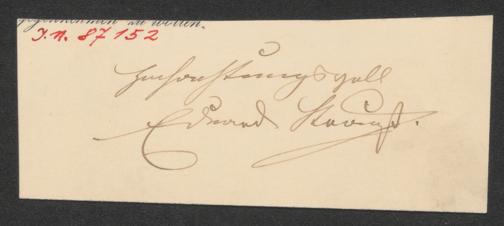 zu wollen.
J. N. 87152
Hochachtungsvoll
Eduard Strauß.